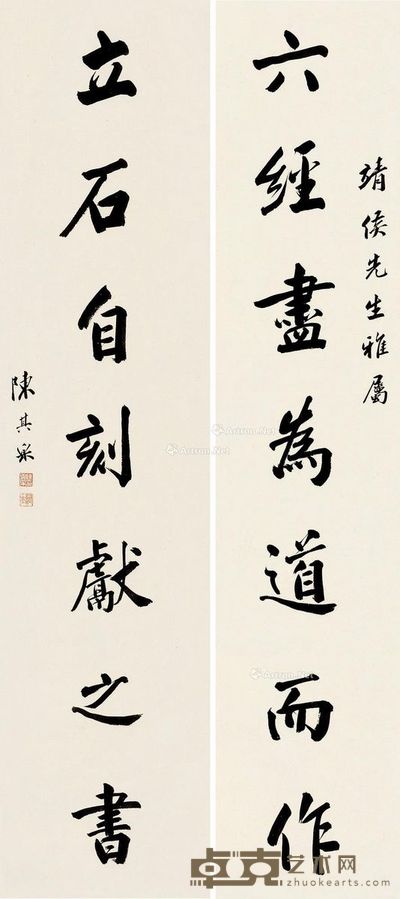 靖侯先生雅属
六經盡為道而作
立石自刻獻之書
陳其采
Artron.Net
Artron.Net
Artron.Net
卓克艺术网
www.zhuokearts.com